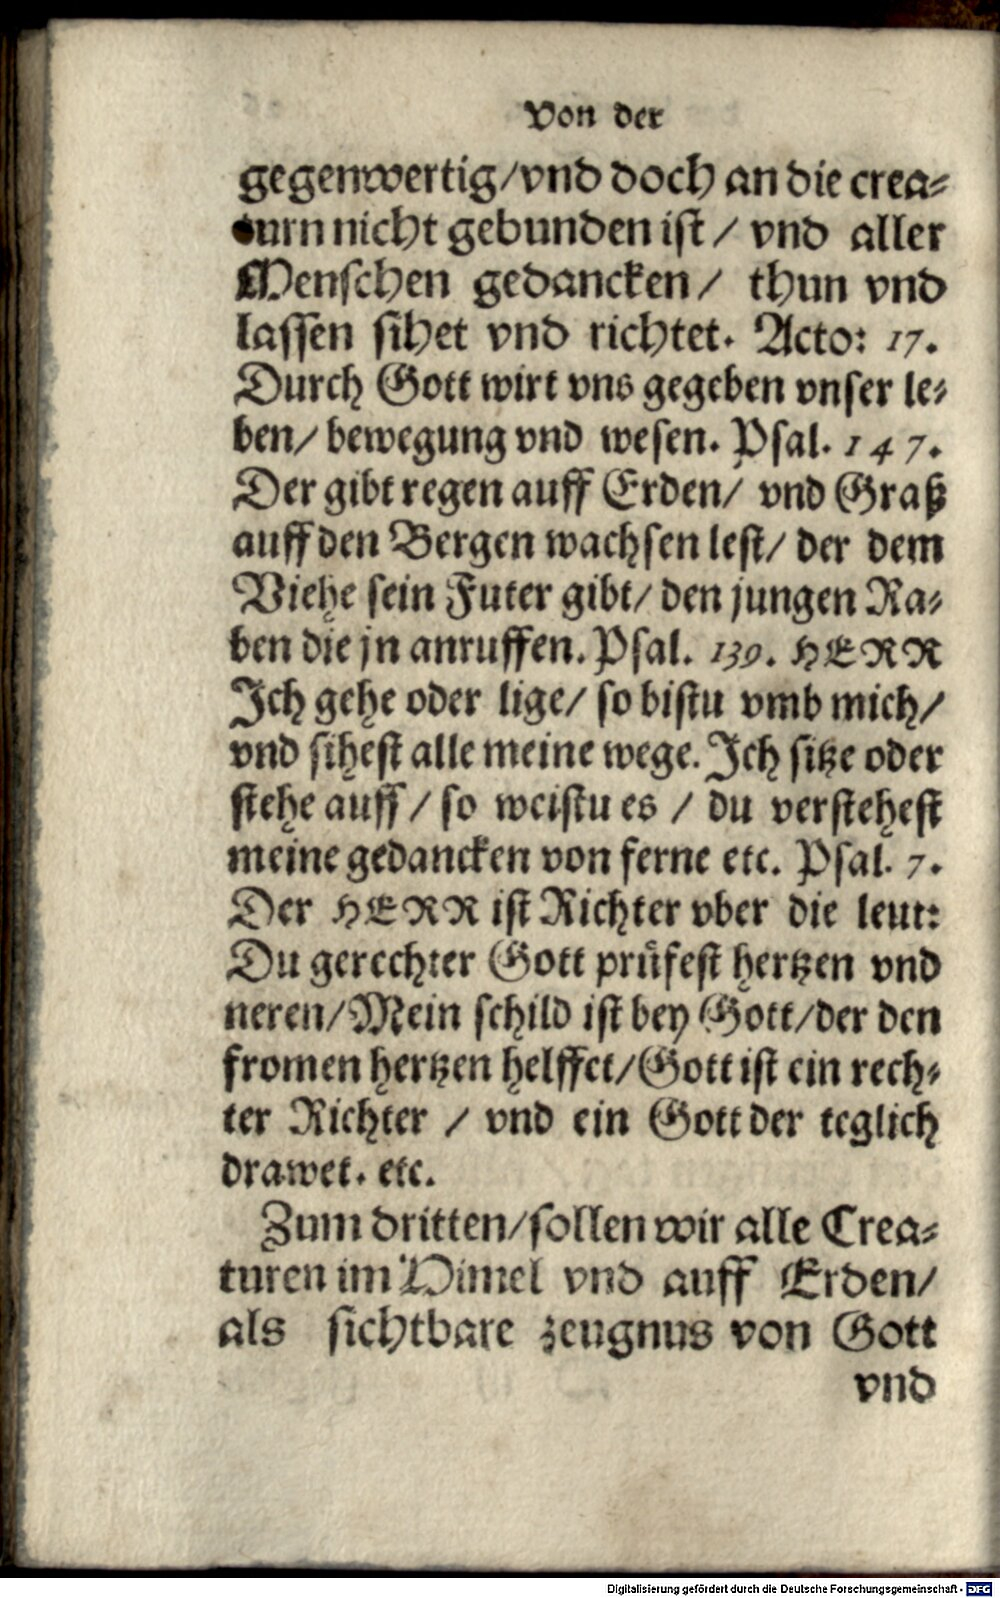 Von der
gegenwertig/vnd doch an die crea⸗
turn nicht gebunden ist/ vnd aller
Menschen gedancken/ thun vnd
lassen sihet vnd richtet. Acto: 17.
Durch Gott wirt vns gegeben vnser le⸗
ben/ bewegung vnd wesen. Psal. 147.
Der gibt regen auff Erden/ vnd Graß
auff den Bergen wachsen lest/ der dem
Viehe sein Futer gibt/ den jungen Ra⸗
ben die jn anruffen. Psal. 139. HERR
Ich gehe oder lige/ so bistu vmb mich/
vnd sihest alle meine wege. Ich sitze oder
stehe auff/ so weistu es / du verstehest
meine gedancken von ferne etc. Psal. 7.
Der HERR ist Richter vber die leut:
Du gerechter Gott prüfest hertzen vnd
neren/Mein schild ist bey Gott/der den
fromen hertzen helffet/Gott ist ein rech⸗
ter Richter / vnd ein Gott der teglich
drawet. etc.
Zum dritten/sollen wir alle Crea⸗
turen im Himel vnd auff Erden/
als sichtbare zeugnus von Gott
vnd
Digitalisierung gefördert durch die Deutsche Forschungsgemeinschaft - DFG